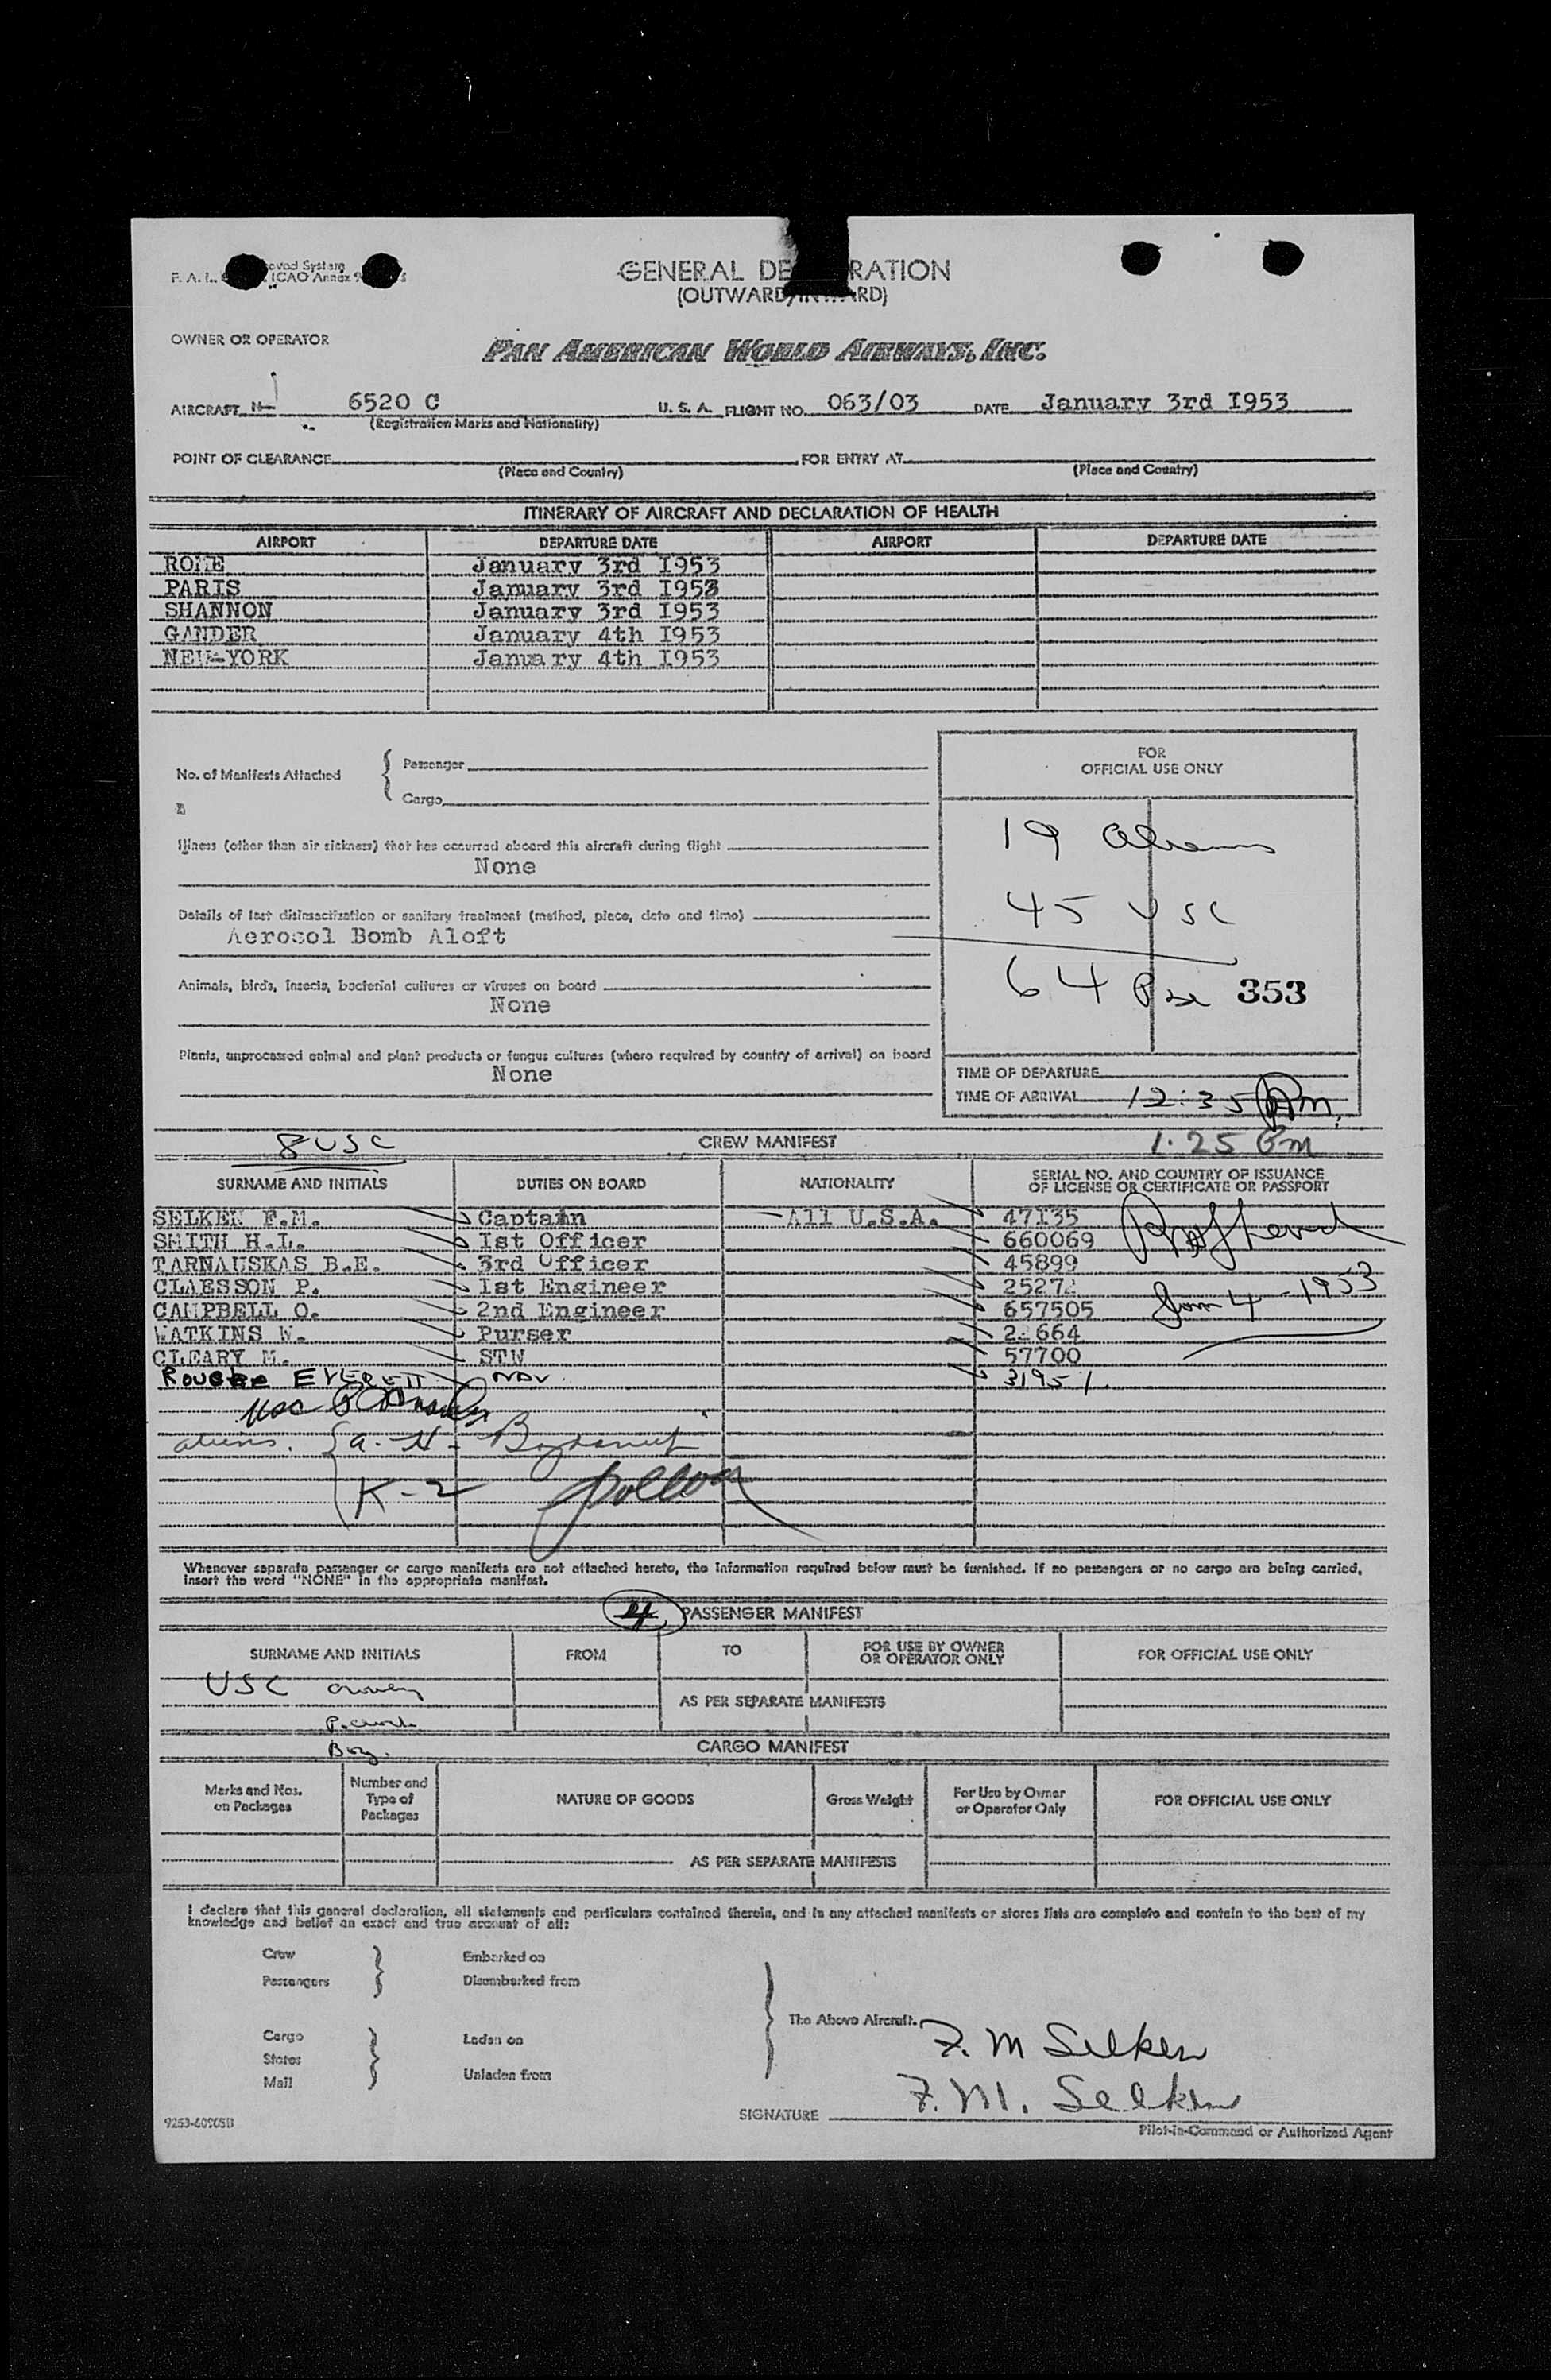 F. A. L. ICAO Annex 9
GENERAL DE RATION
(OUTWARD/IN ARD)
OWNER OR OPERATOR
PAN AMERICAN WORLD AIRWAYS, INC.
AIRCRAFT N 6520 C U. S. A. FLIGHT NO. 063/03 DATE January 3rd I953
(Registration Marks and Nationality)
POINT OF CLEARANCE FOR ENTRY AT
(Place and Country) (Place and Country)
ITINERARY OF AIRCRAFT AND DECLARATION OF HEALTH
AIRPORT DEPARTURE DATE AIRPORT DEPARTURE DATE
ROME January 3rd I953
PARIS January 3rd I953
SHANNON January 3rd I953
GANDER January 4th I953
NEW-YORK January 4th I953
No. of Manifests Attached { Passenger
Cargo
FOR
OFFICIAL USE ONLY
19 Aliens
45 USC
64 353
Illness (other than air sickness) that has occurred aboard this aircraft during flight
None
Details of last disinsectization or sanitary treatment (method, place, date and time)
Aerosol Bomb Aloft
Animals, birds, insects, bacterial cultures or viruses on board
None
Plants, unprocessed animal and plant products or fungus cultures (where required by country of arrival) on board
None
TIME OF DEPARTURE
TIME OF ARRIVAL 12:35 Pm.
8 USC CREW MANIFEST 1:25 Pm
SURNAME AND INITIALS DUTIES ON BOARD NATIONALITY SERIAL NO. AND COUNTRY OF ISSUANCE
OF LICENSE OR CERTIFICATE OR PASSPORT
SELKEN F.M. Captain All U.S.A. 47I35
SMITH H.L. Ist Officer 660069
TARNAUSKAS B.E. 3rd Officer 45899
CLAESSON P. Ist Engineer
CAMPBELL O. 2nd Engineer 657505
Jan 4 - 1953
WATKINS W. Purser
CLEARY M. STW 57700
EVERETT NAV 31951
USC
aliens.
K-2
Whenever separate passenger or cargo manifests are not attached hereto, the information required below must be furnished. If no passengers or no cargo are being carried,
insert the word "NONE" in the appropriate manifest.
4 PASSENGER MANIFEST
SURNAME AND INITIALS FROM TO FOR USE BY OWNER
OR OPERATOR ONLY FOR OFFICIAL USE ONLY
USC
AS PER SEPARATE MANIFESTS
CARGO MANIFEST
Marks and Nos.
on Packages Number and
Type of
Packages NATURE OF GOODS Gross Weight For Use by Owner
or Operator Only FOR OFFICIAL USE ONLY
AS PER SEPARATE MANIFESTS
I declare that this general declaration, all statements and particulars contained therein, and in any attached manifests or stores lists are complete and contain to the best of my
knowledge and belief an exact and true account of all:
Crew } Embarked on
Passengers Disembarked from
The Above Aircraft.
Cargo } Laden on
Stores
Mail Unladen from
F. M Selken
F. M. Selken
SIGNATURE
Pilot-in-Command or Authorized Agent